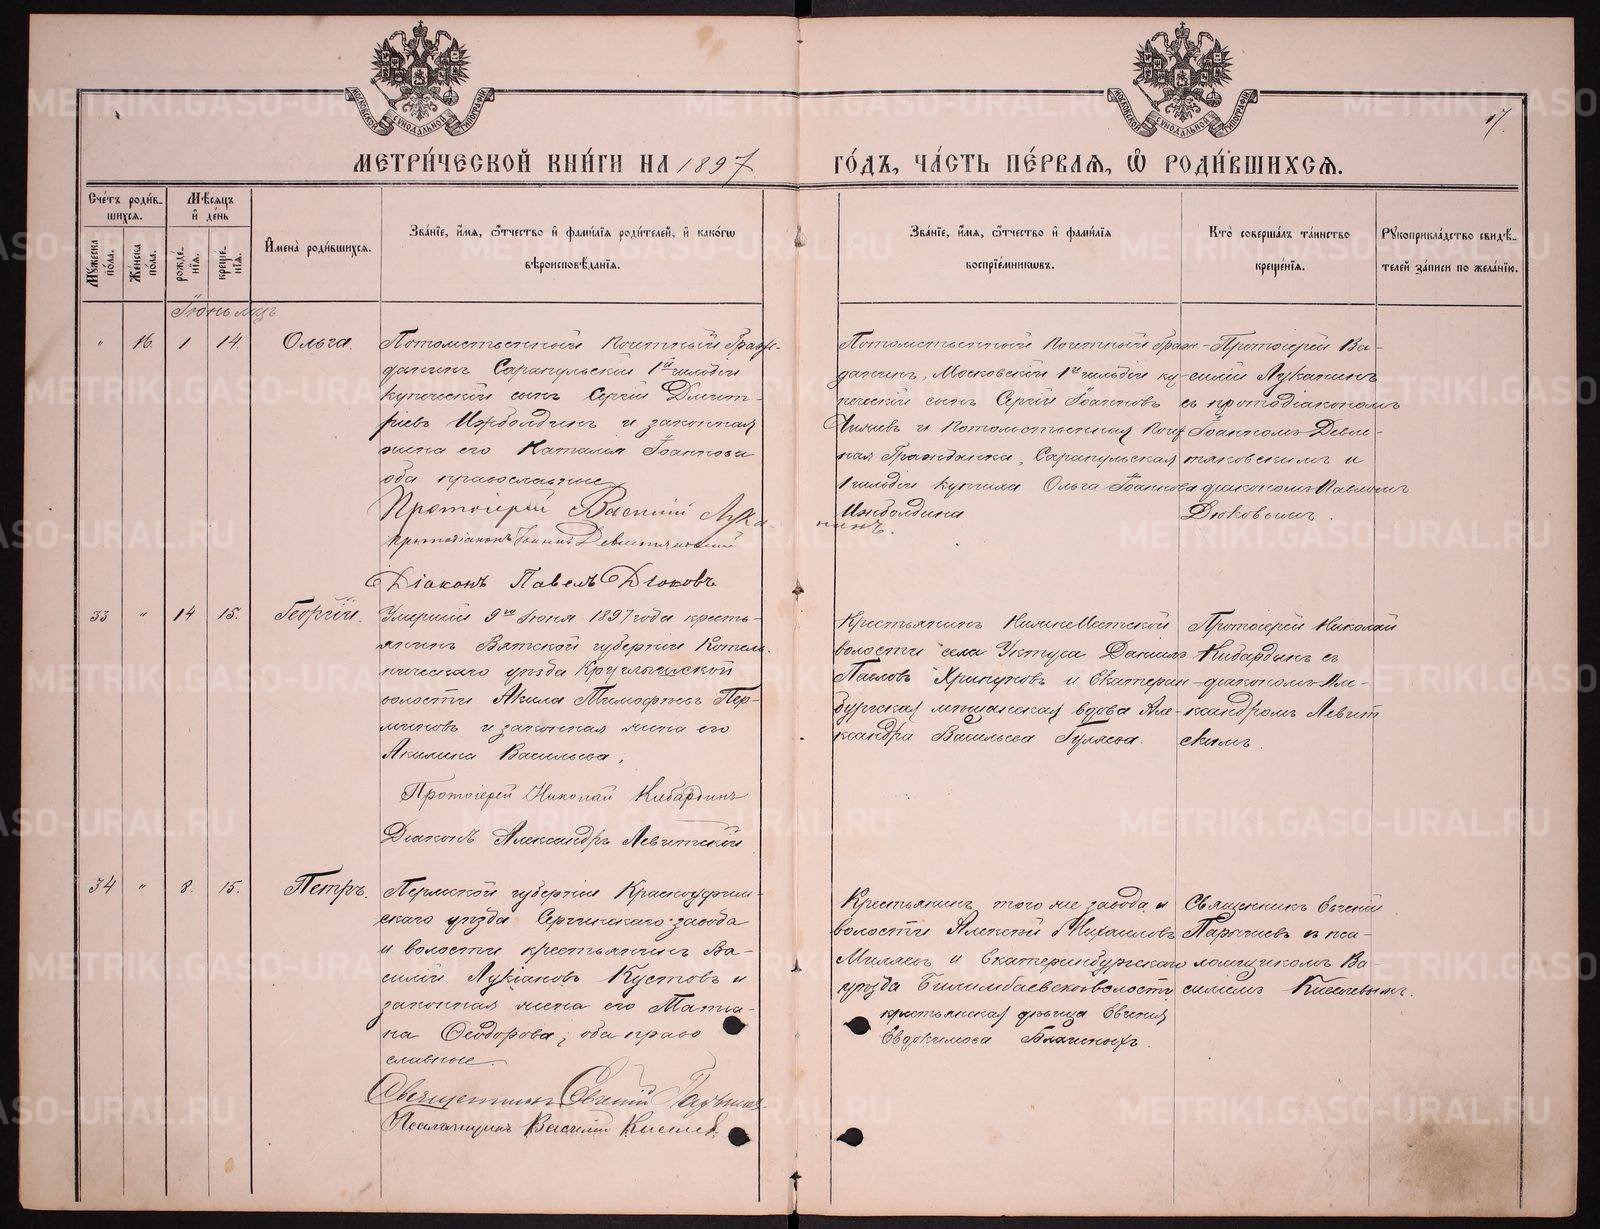 МОСКОВСКОЙ СѴНОДАЛЬНОЙ ТИПОГРАФІИ
МОСКОВСКОЙ СѴНОДАЛЬНОЙ ТИПОГРАФІИ
17.
МЕТРИ́ЧЕСКОЙ КНИ́ГИ НА 1897
ГО́ДЪ, ЧА́СТЬ ПЕ́РВАЯ, Ѽ РОДИ́ВШИХСЯ.
Сче́тъ роди́в-
шихся.
Мѣсяцъ
и҆ де́нь
Мꙋ́жеска по́ла.
Же́нска по́ла.
рожде́-
нїя.
креще́-
нїя.
И҆мена̀ роди́вшихся.
Зва́нїе, и҆́мя, ѻ҆́тчество и҆ фами́лїя роди́телей, и҆ како́гѡ
вѣроисповѣ́данїя.
Зва́нїе, и҆́мя, ѻ҆́тчество и҆ фами́лїя
воспрїе́мникѡвъ.
Кто̀ соверша́лъ та́инство
креще́нїя.
Рꙋкоприкла́дство свидѣ́-
телей за́писи по жела́нїю.
Іюнь мцъ
" 16. 1 14. Ольга.
Потомственный Почетный Граж-
данинъ Сарапульскій 1й гильдіи
купеческій сынъ Сергій Димит-
ріевъ Ижболдинъ и законная
жена его Наталія Іоаннова
оба православные
Протоіерей Василій Лука
нинъ.
протодіаконъ Іоаннъ
Діаконъ Павелъ Дюковъ
Потомственный Почетный Граж-
данинъ, Московскій 1й гильдіи ку-
печескій сынъ Сергій Іоанновъ
и Потомственная Почет
ная Гражданка, Сарапульская
1 гильдіи купчиха Ольга Іоаннова
Ижболдина
Протоіерей Ва-
силій Луканинъ
съ протодіакономъ
Іоанномъ
и
діакономъ Павломъ
Дюковымъ.
33 " 14 15. Георгій.
Умершій 9го Іюня 1897 года кресть-
янинъ Вятской губерніи Котель-
ническаго уѣзда Круглыжской
волости Акила Тимофеевъ Пер-
миновъ и законная жена его
Акилина Васильева,
Протоіерей Николай Кибардинъ
Діаконъ Александръ Левитскій
Крестьянинъ Нижне-Исетской
волости села Уктуса Даніилъ
Павловъ Хрипуновъ и Екатерин-
бургская мѣщанская вдова Але-
ксандра Васильева Гуляева.
Протоіерей Николай
Кибардинъ съ
діакономъ Але-
ксандромъ Левит
скимъ.
34 " 8. 15. Петръ.
Пермской губерніи Красноуфим-
скаго уѣзда Сергинскаго завода
и волости крестьянинъ Ва-
силій Лукіановъ Кустовъ и
законная жена его Матро-
на Ѳеодорова; оба право
славные.
Священникъ Евгеній
Псаломщикъ Василій Киселев
Крестьянинъ того же завода и
волости Алексій Михаиловъ
Миляевъ и Екатеринбургскаго
уѣзда Билимбаевской волости
крестьянская дѣвица Евгенія
Евдокимова
Священникъ Евгеній
съ пса-
ломщикомъ Ва-
силіемъ Киселевымъ.
METRIKI.GASO-URAL.RU